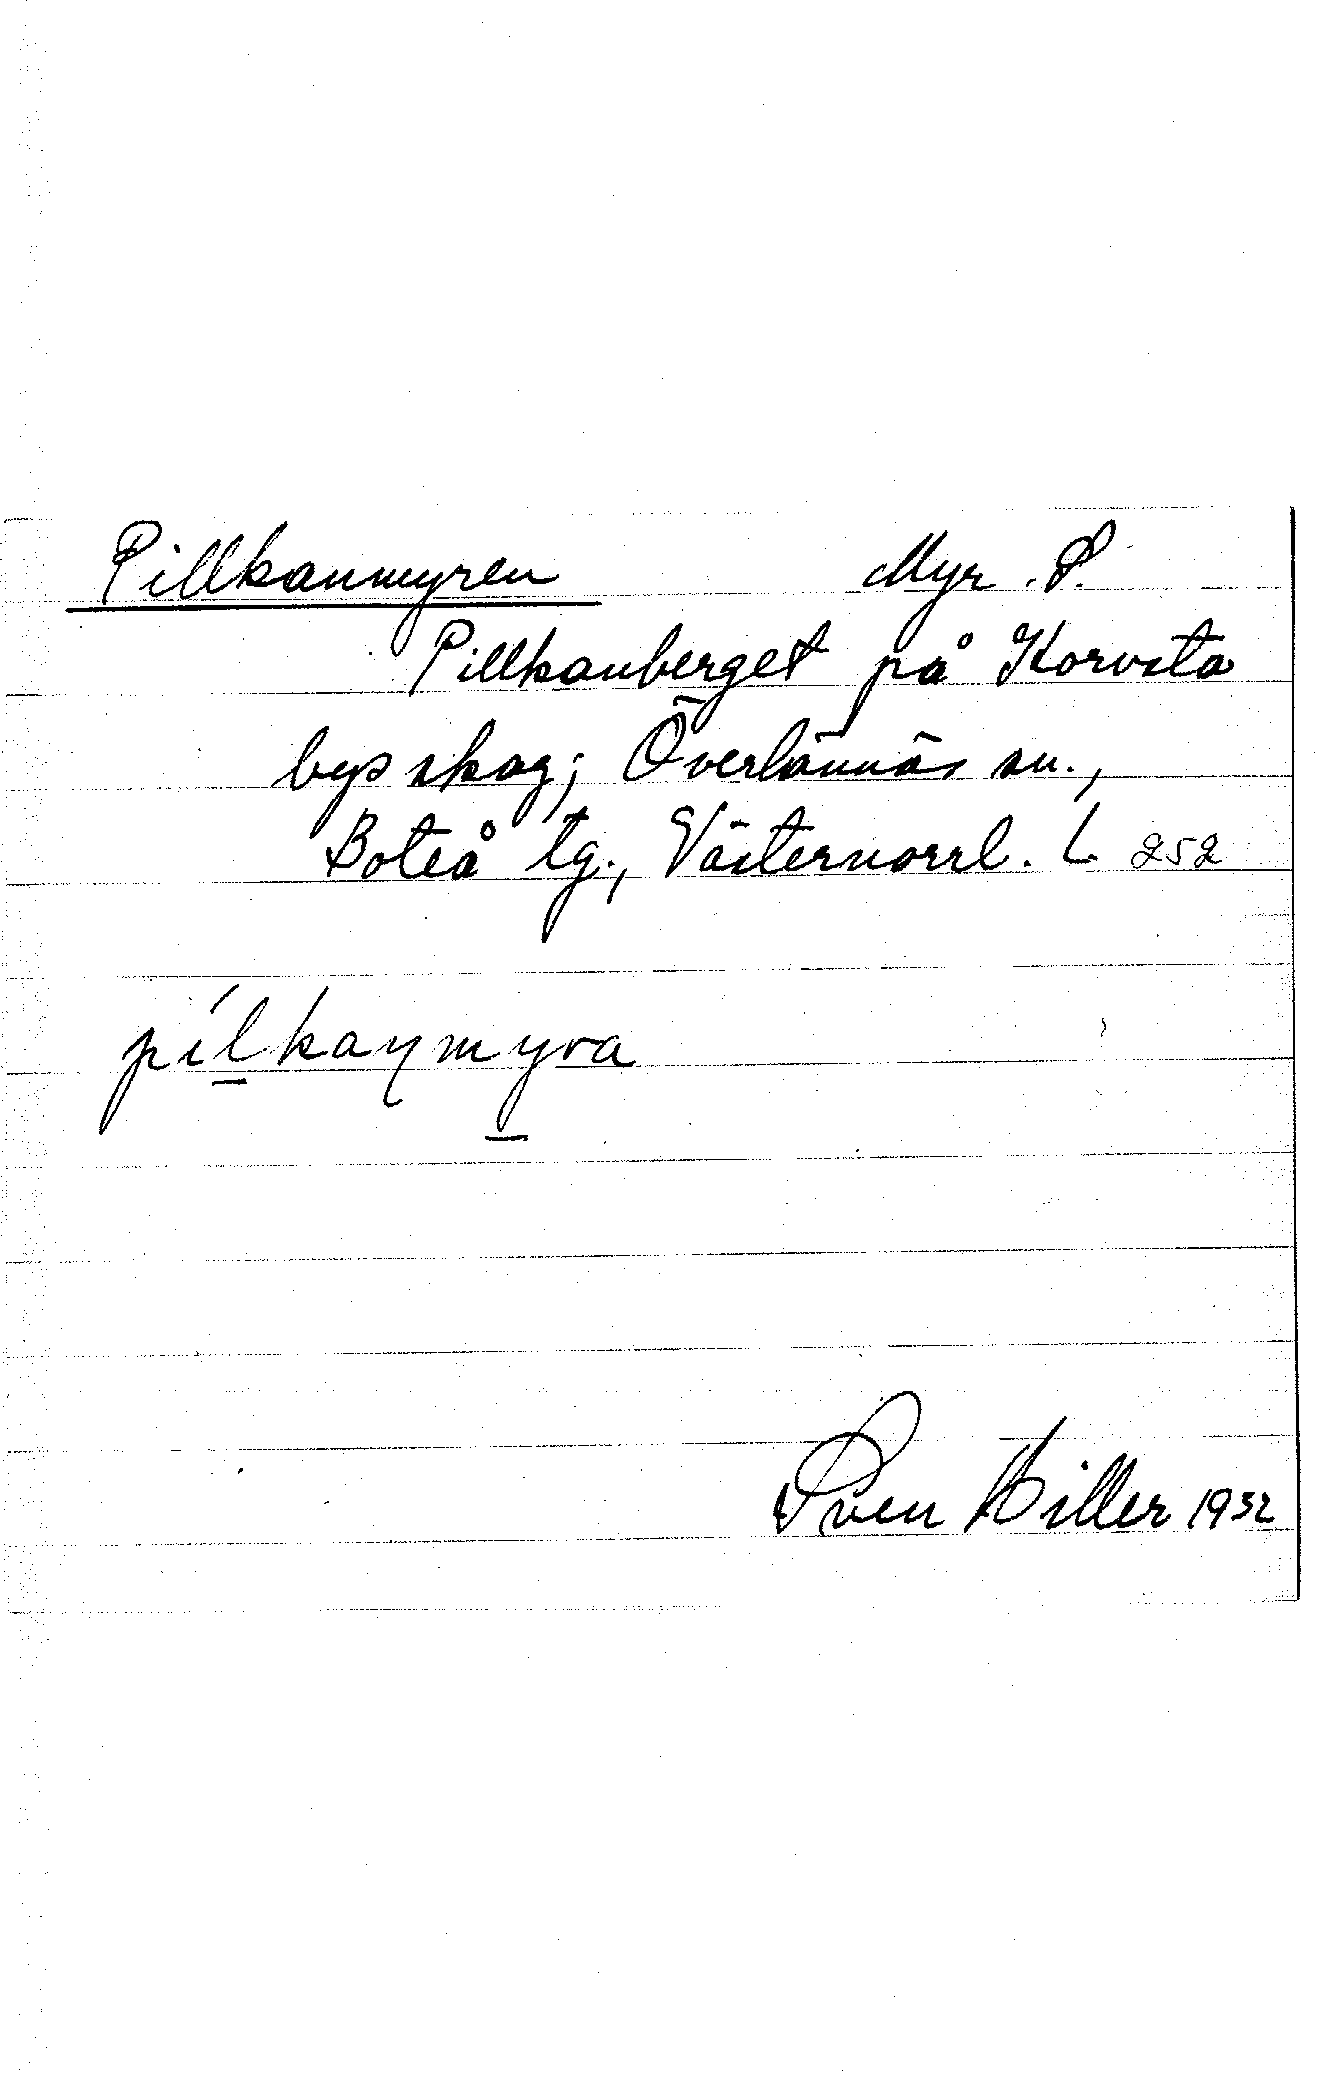 Pillkanmyren Myr. S.
Pillkanberget på Korvsta
bys skog; Överlännäs sn.,
Boteå tg., Västernorrl. L. 252
pílkaŋmyra
Sven Hiller 1932